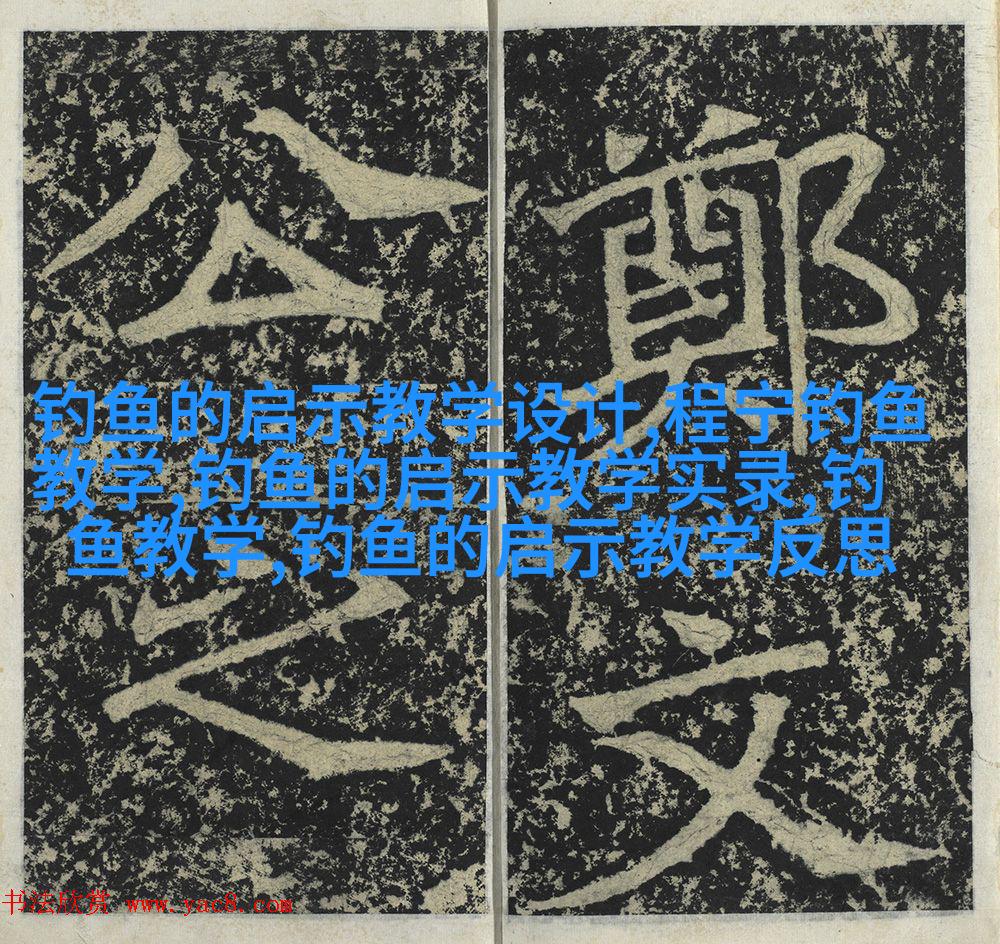 鄭文
公之
钓鱼的启示教学设计,程宁钓鱼
教学,钓鱼的启示教学实录,钓
鱼教学,钓鱼的启示教学反思
书法欣赏 www.yac8.com